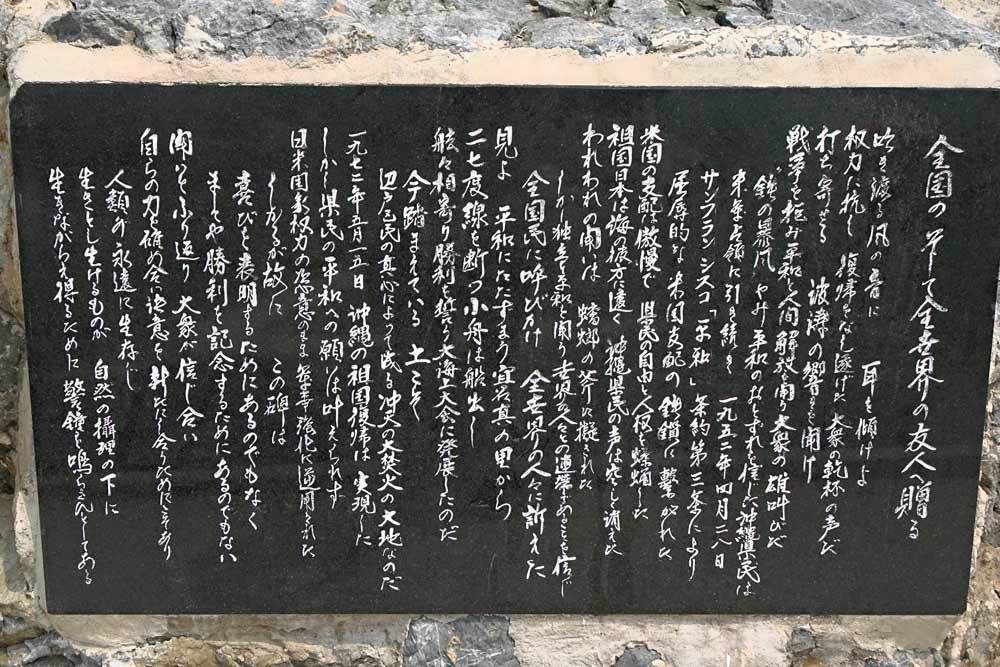 全国の そして全世界の友人へ贈る
吹き渡る風の音に 耳を傾けよ
权力に抗し 復帰をなし遂げた 大衆の乾杯の声だ
打ち寄せる 波濤の響きを聞け
戦争を拒み平和と人間解放を闘う大衆の雄叫びだ
“鉄の暴風„やみ平和のおとずれを信じた沖縄県民は
米軍占領に引き続き 一九五二年四月二八日
サンフランシスコ「平和」条約第三条により
屈辱的な米国支配の鉄鎖に繋がれた
米国の支配は傲慢で 県民の自由と人权を蹂躙した
祖国日本は海の彼方に遠く 沖縄県民の声は空しく消えた
われわれの闘いは 蟷螂の斧に擬された
しかし独立と平和を闘う世界の人々との連帯あることを信じ
全国民に呼びかけ 全世界の人々に訴えた
見よ 平和にたたずまう宜名真の里から
二七度線を断つ小舟は船出し
舷々相寄り勝利を誓う大海上大会に発展したのだ
今踏まえている 土こそ
辺戸区民の真心によって成る冲天の大焚火の大地なのだ
一九七二年五月一五日 沖縄の祖国復帰は実現した
しかし県民の平和への願いは叶えられず
日米国家权力の恣意のまま 軍事強化に逆用された
しかるが故に この碑は
喜びを表明するためにあるのでもなく
ましてや勝利を記念するためにあるのでもない
闘いをふり返り 大衆が信じ合い
自らの力を確め合い決意を新たにし合うためにこそあり
人類が永遠に生存し
生きとし生けるものが 自然の攝理の下に
生きながらえ得るために 警鐘を鳴らさんとしてある